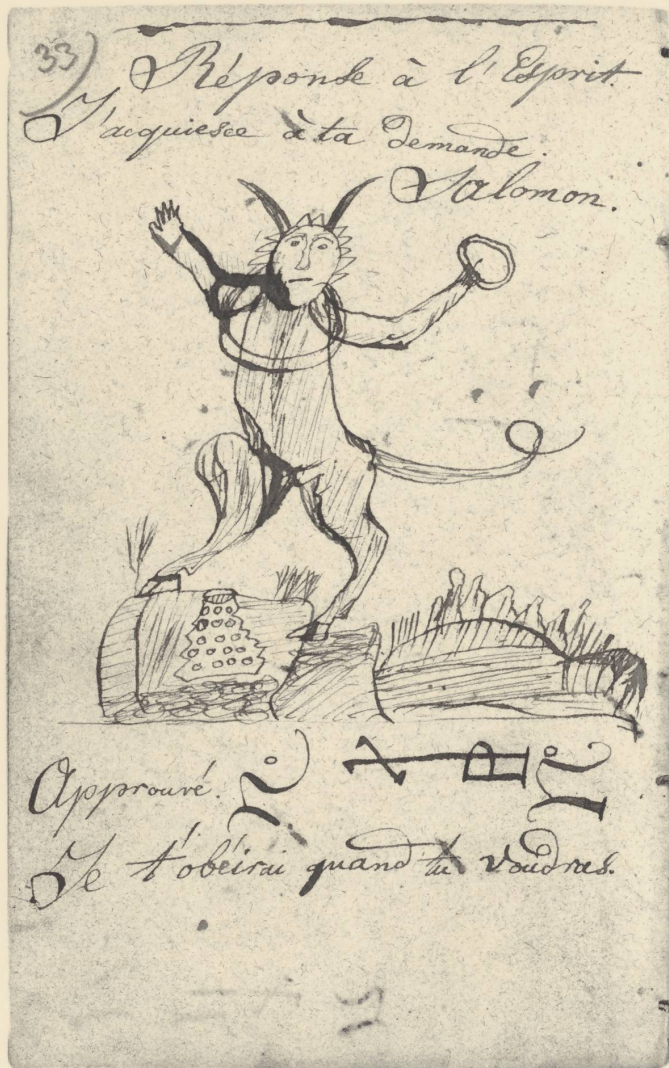 33)
Réponse à l'Esprit
J'acquiesce à ta demande.
Salomon.
Approuvé.
Je t'obéirai quand tu voudras.